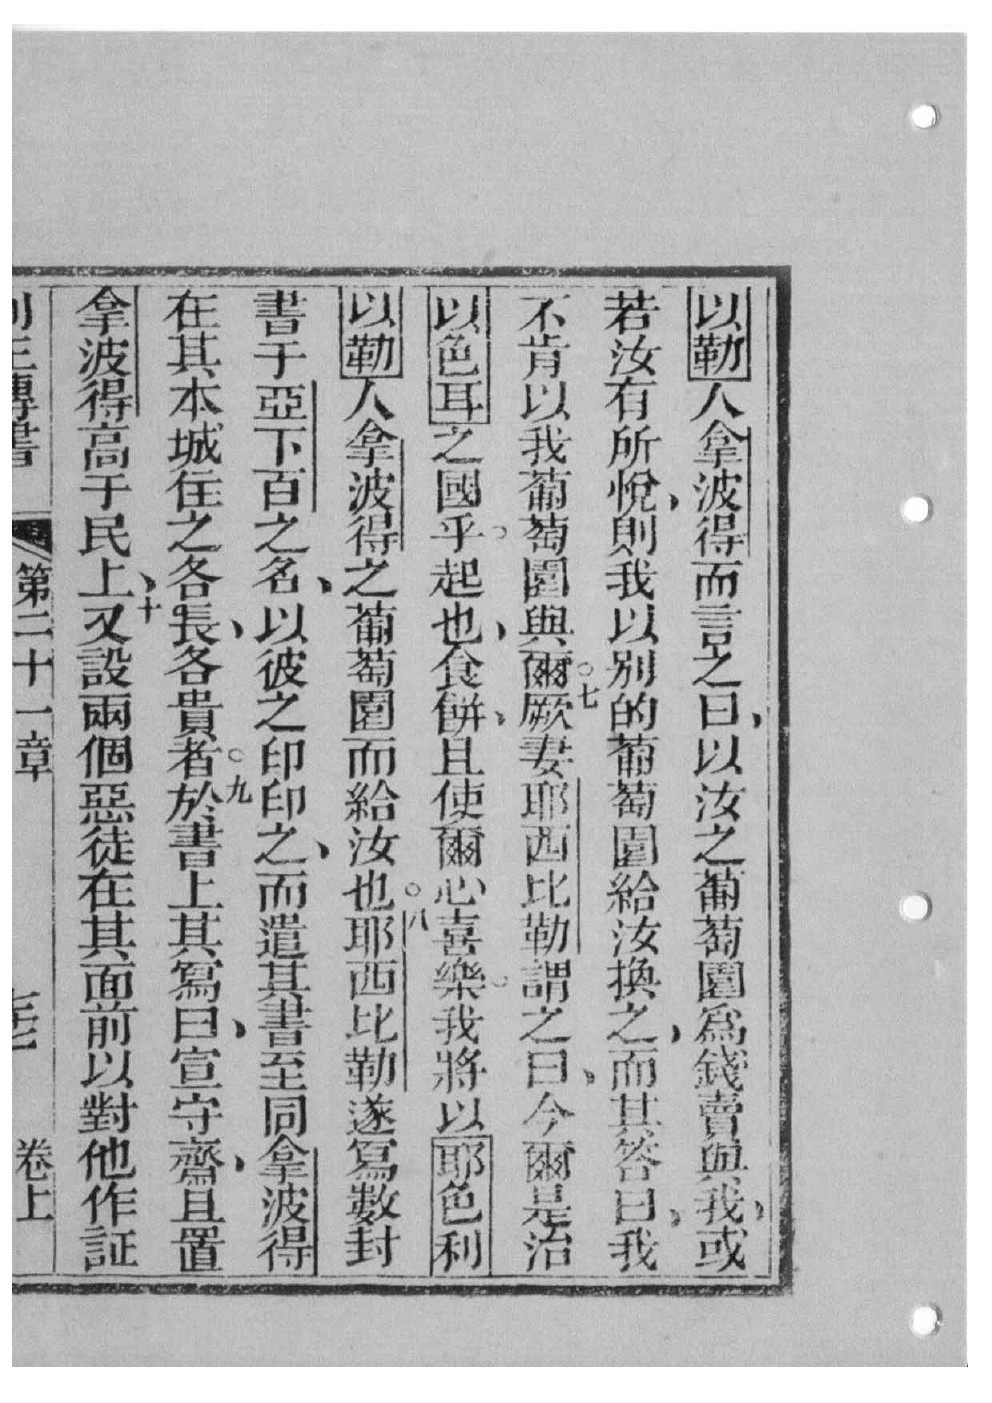 以勒人拿波得而言之曰、以汝之葡萄園爲錢賣與我、或
若汝有所悅、則我以别的葡萄園給汝換之、而其答曰、我
不肯以我葡萄園與爾。七厥妻耶西比勒謂之曰、今爾是治
以色耳之國乎。起也、食餅、且使爾心喜樂。我將以耶色利
以勒人拿波得之葡萄園而給汝也。八耶西比勒遂寫數封
書于亞下百之名、以彼之印印之、而遣其書至同拿波得
在其本城住之各長、各貴者。九於書上其寫曰、宣守齋、且置
拿波得高于民上、十又設兩個惡徒在其面前以對他作証
列王傳書 第二十一章 卷上